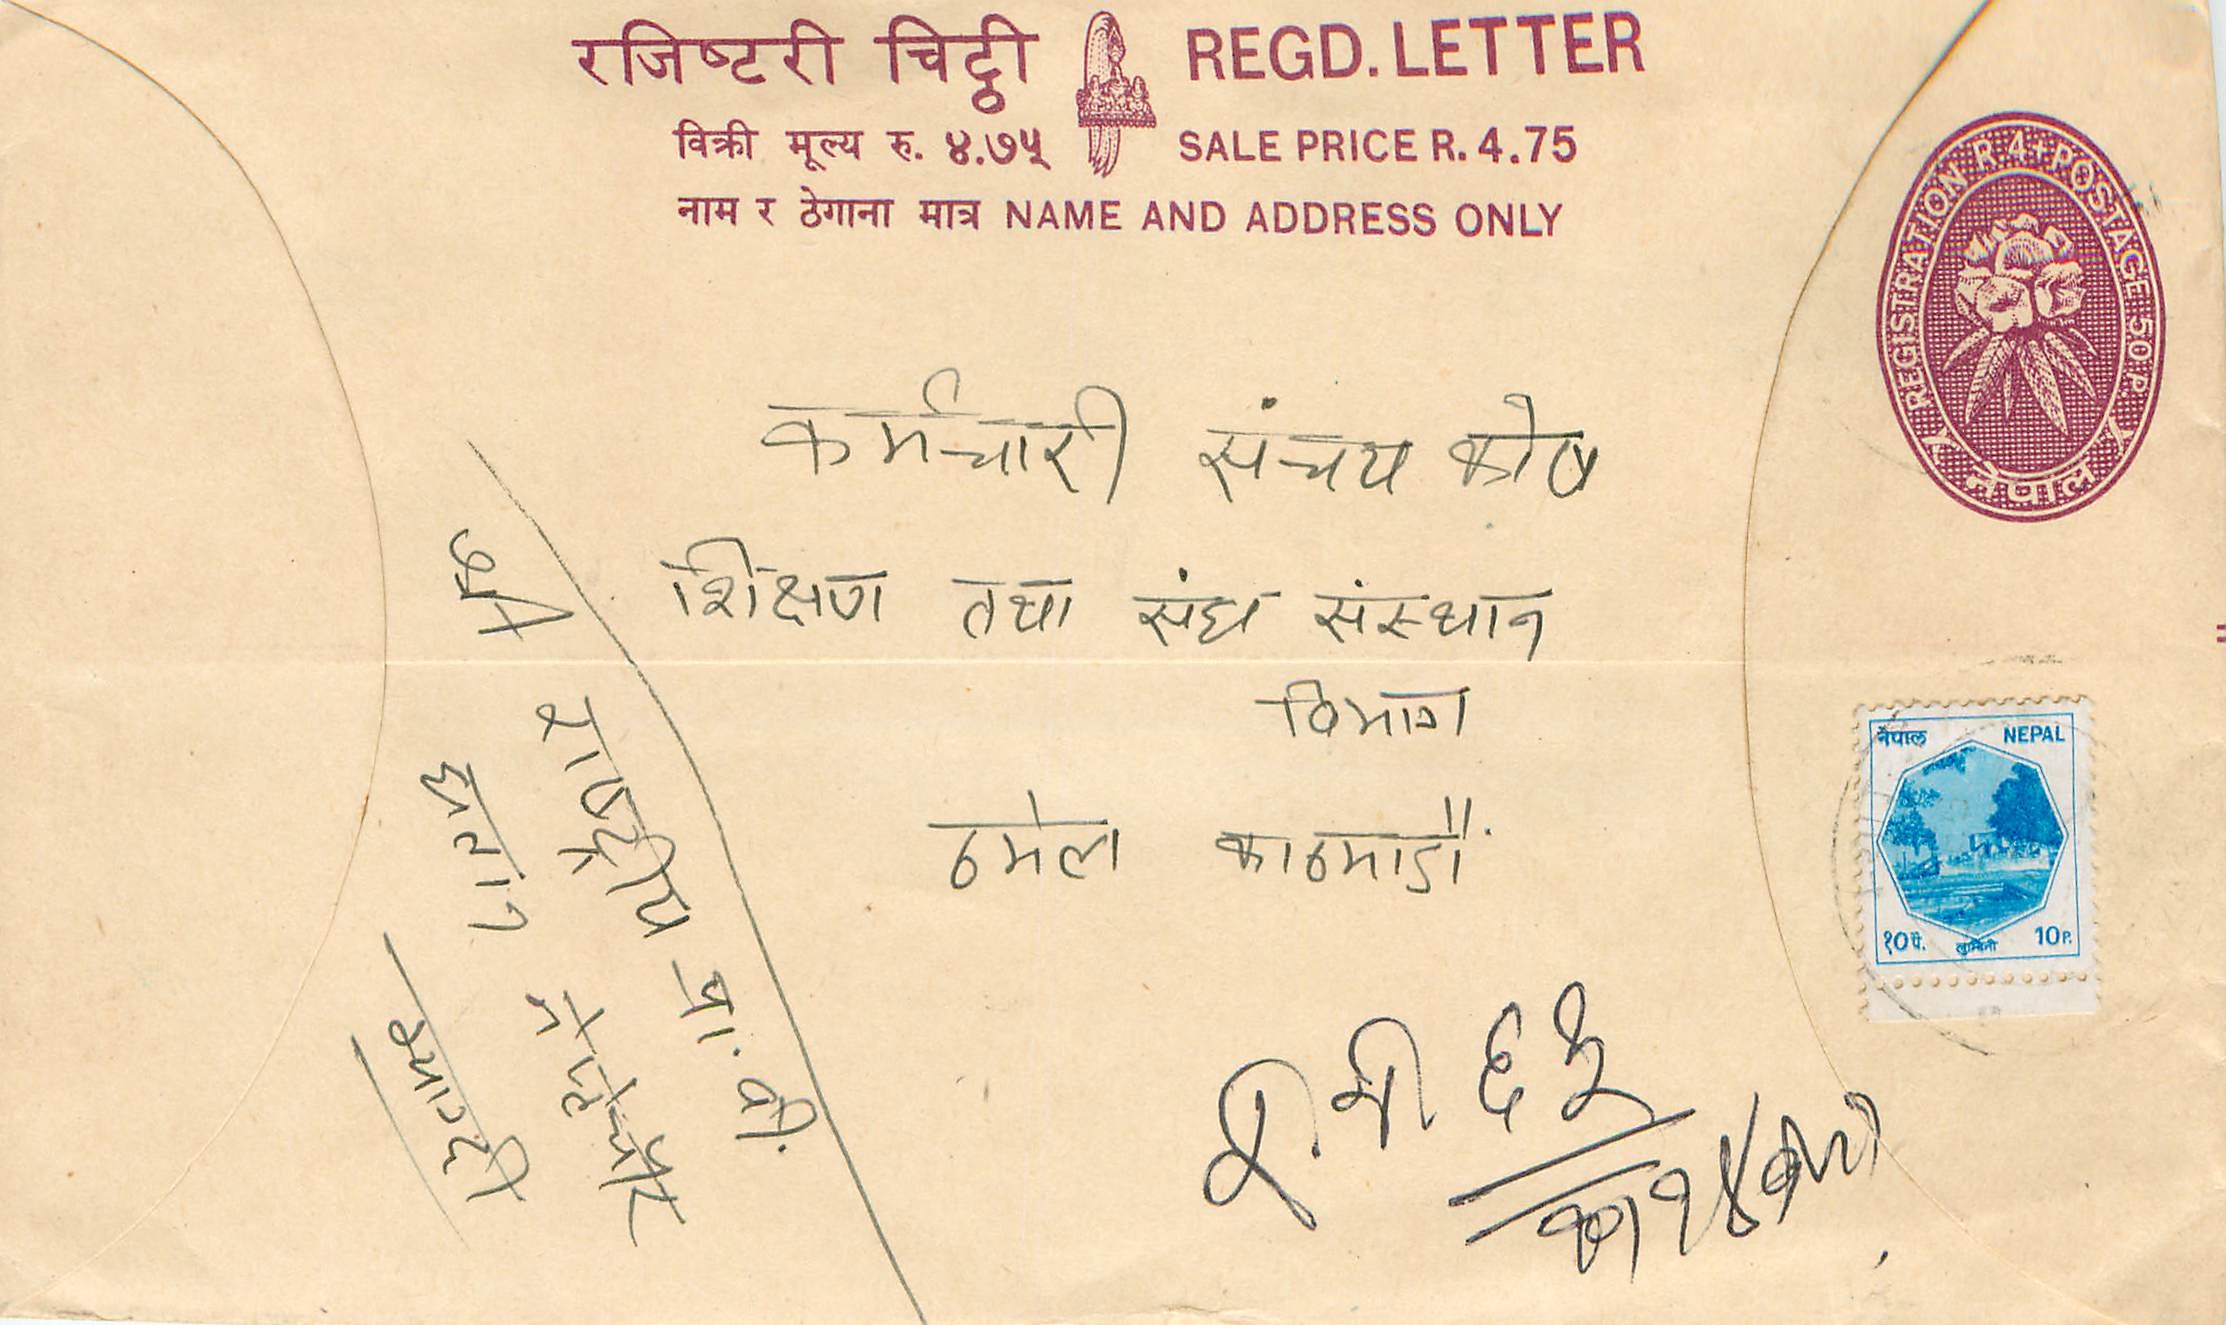 रजिष्टरी चिट्ठी REGD. LETTER
विक्री मूल्य रु. ४.७५ SALE PRICE R. 4.75
नाम र ठेगाना मात्र NAME AND ADDRESS ONLY
REGISTRATION R 4+POSTAGE 50 P.
नेपाल
कर्मचारी संचय कोष
शिक्षण तथा संघ संस्थान
विभाग
ठमेल काठमाडौं
नेपाल NEPAL
१० पै. लुम्बिनी 10 P.
राष्ट्रीय प्रा. वि.